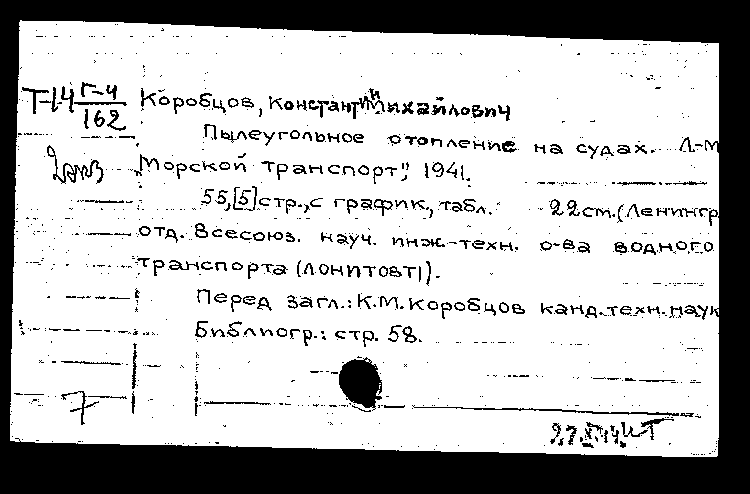 Т-14 Г-4/162
Коробцов, Константин Михайлович
Пылеугольное отопление на судах. Л-М
"Морской транспорт", 1941.
55,[5] стр., с график., табл. 22 см. (Ленингр.
отд. Всесоюз. науч. инж.-техн. о-ва водного
транспорта (ЛОНИТОВТ).
Перед загл.: К.М. Коробцов канд. техн. наук
Библиогр.: стр. 58.
7